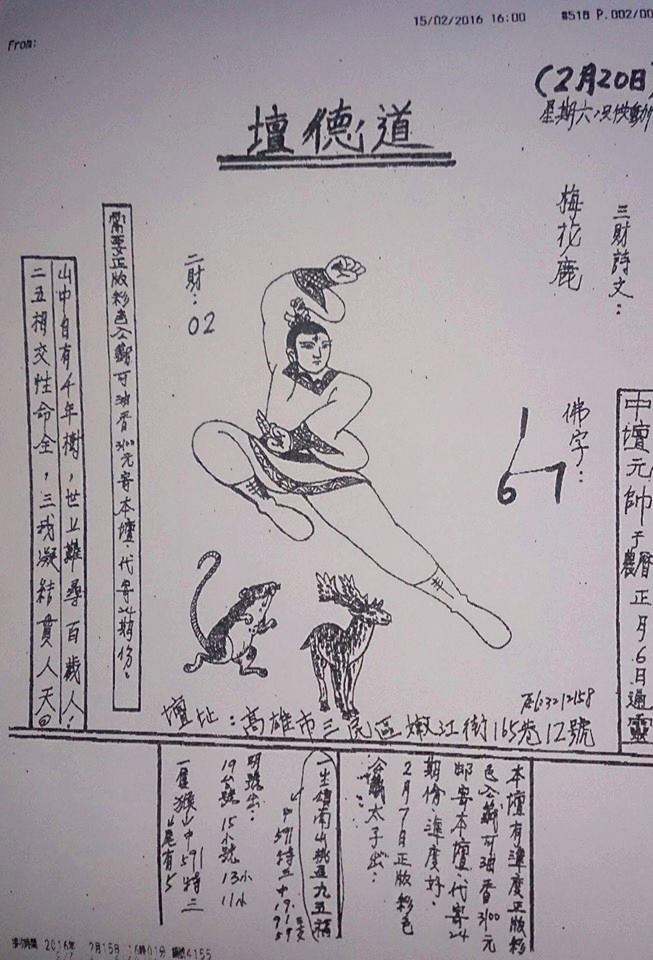 15/02/2016 16:00
From:
(2月20日)
星期六
壇德道
三財詩文：
梅花鹿
佛字：
1
6 7
中壇元帥于農曆正月6日通靈
二財：
02
需要正版彩色公籤可油香300元寄本壇，代寄24期份。
山中自有千年樹，世上難尋百歲人！
二五相交性命全，三我凝結貫人天
3212158
壇址：高雄市三民區嫩江街165巷12號
本壇有準度正版彩
色公籤可油香300元
郵寄本壇，代寄24
期份，準度好。
2月7日正版彩色
公籤太子出：
一生嶺南山桃五九五福
中591特三中1919
明號出：
19台號15小號13小
11小
一屋猴山中591特三
2016年 2月15日 16時01分
4155